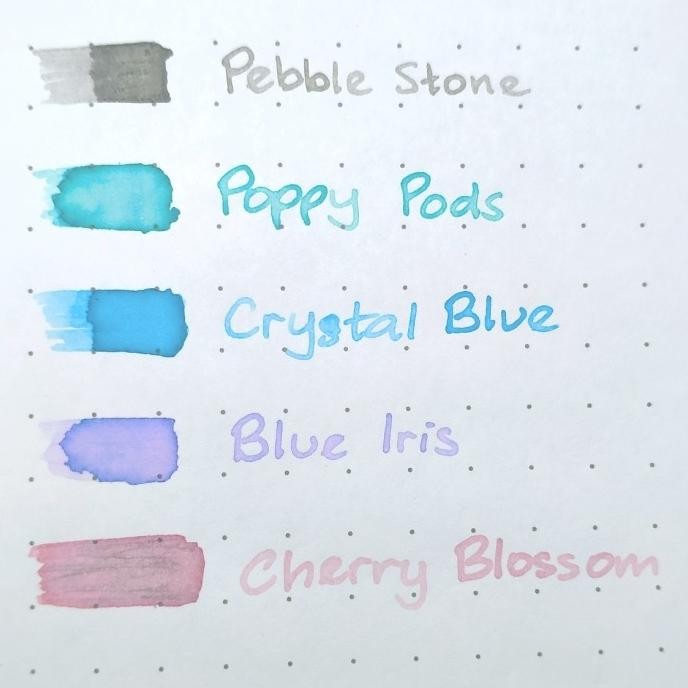 Pebble Stone
Poppy Pods
Crystal Blue
Blue Iris
Cherry Blossom